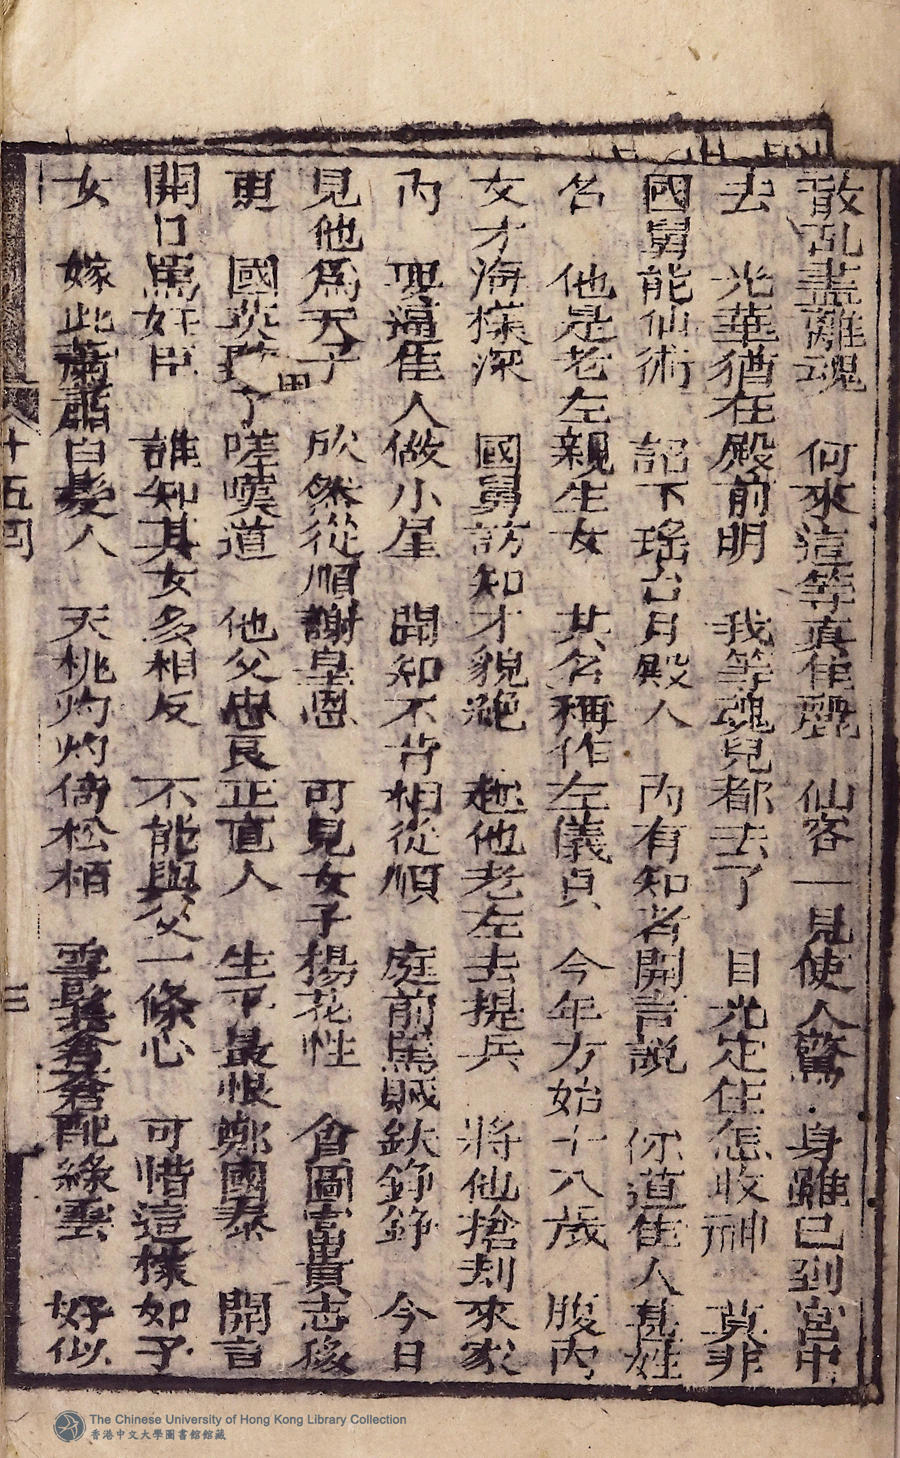 散乱盡離魂　何來這等真佳麗　仙客一見使人驚　身雖已到宮中
去　光華猶在殿前明　我等魂兒都去了　目光定住怎收神　莫非
國舅能仙術　詔下瑤台月殿人　內有知者開言説　你道佳人甚姓
名　他是老左親生女　其名稱作左儀貞　今年方始十八歲　腹內
文才海樣深　國舅訪知才貌絕　趁他老左去提兵　將他搶刦來家
內　要逼佳人做小星　開知不肯相從順　庭前罵賊鈌錚錚　今日
見他爲天子　欣然從順謝皇恩　可見女子楊花性　貪圖富貴志移
更　國英聽了嗟嘆道　他父忠良正直人　生平最恨鄭國泰　開言
開口罵奸臣　誰知其女多相反　不能與父一條心　可惜這樣如予
女　嫁此蕭蕭白髮人　夭桃灼灼倚松栢　雪鬂配綠雲　好似
十五回
三
The Chinese University of Hong Kong Library Collection
香港中文大學圖書館館藏